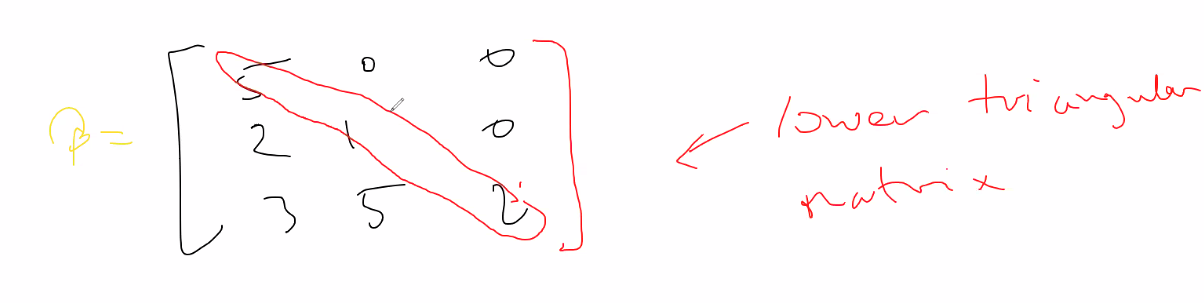 B = [ 5 0 0
2 1 0
3 5 2 ]
← lower triangular
matrix